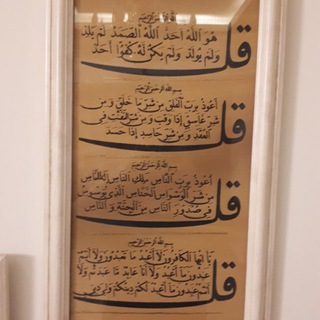 بسم الله الرحمن الرحيم
قل هو الله احد الله الصمد لم يلد
ولم يولد ولم يكن له كفوا احد
بسم الله الرحمن الرحيم
قل اعوذ برب الفلق من شر ما خلق و من
شر غاسق اذا وقب و من شر النفثت في
العقد و من شر حاسد اذا حسد
بسم الله الرحمن الرحيم
قل اعوذ برب الناس ملك الناس اله الناس
من شر الوسواس الخناس الذي يوسوس
في صدور الناس من الجنة و الناس
بسم الله الرحمن الرحيم
قل يا ايها الكافرون لا اعبد ما تعبدون ولا انتم
عبدون ما اعبد ولا انا عابد ما عبدتم ولا
انتم عبدون ما اعبد لكم دينكم ولي دين